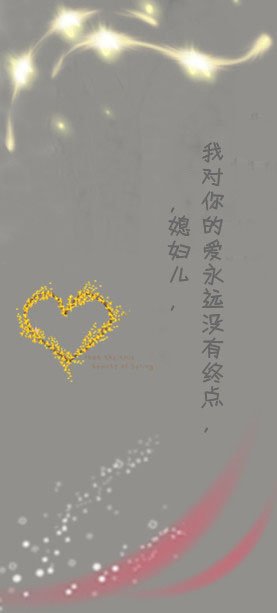 我对你的爱永远没有终点，
，媳妇儿，